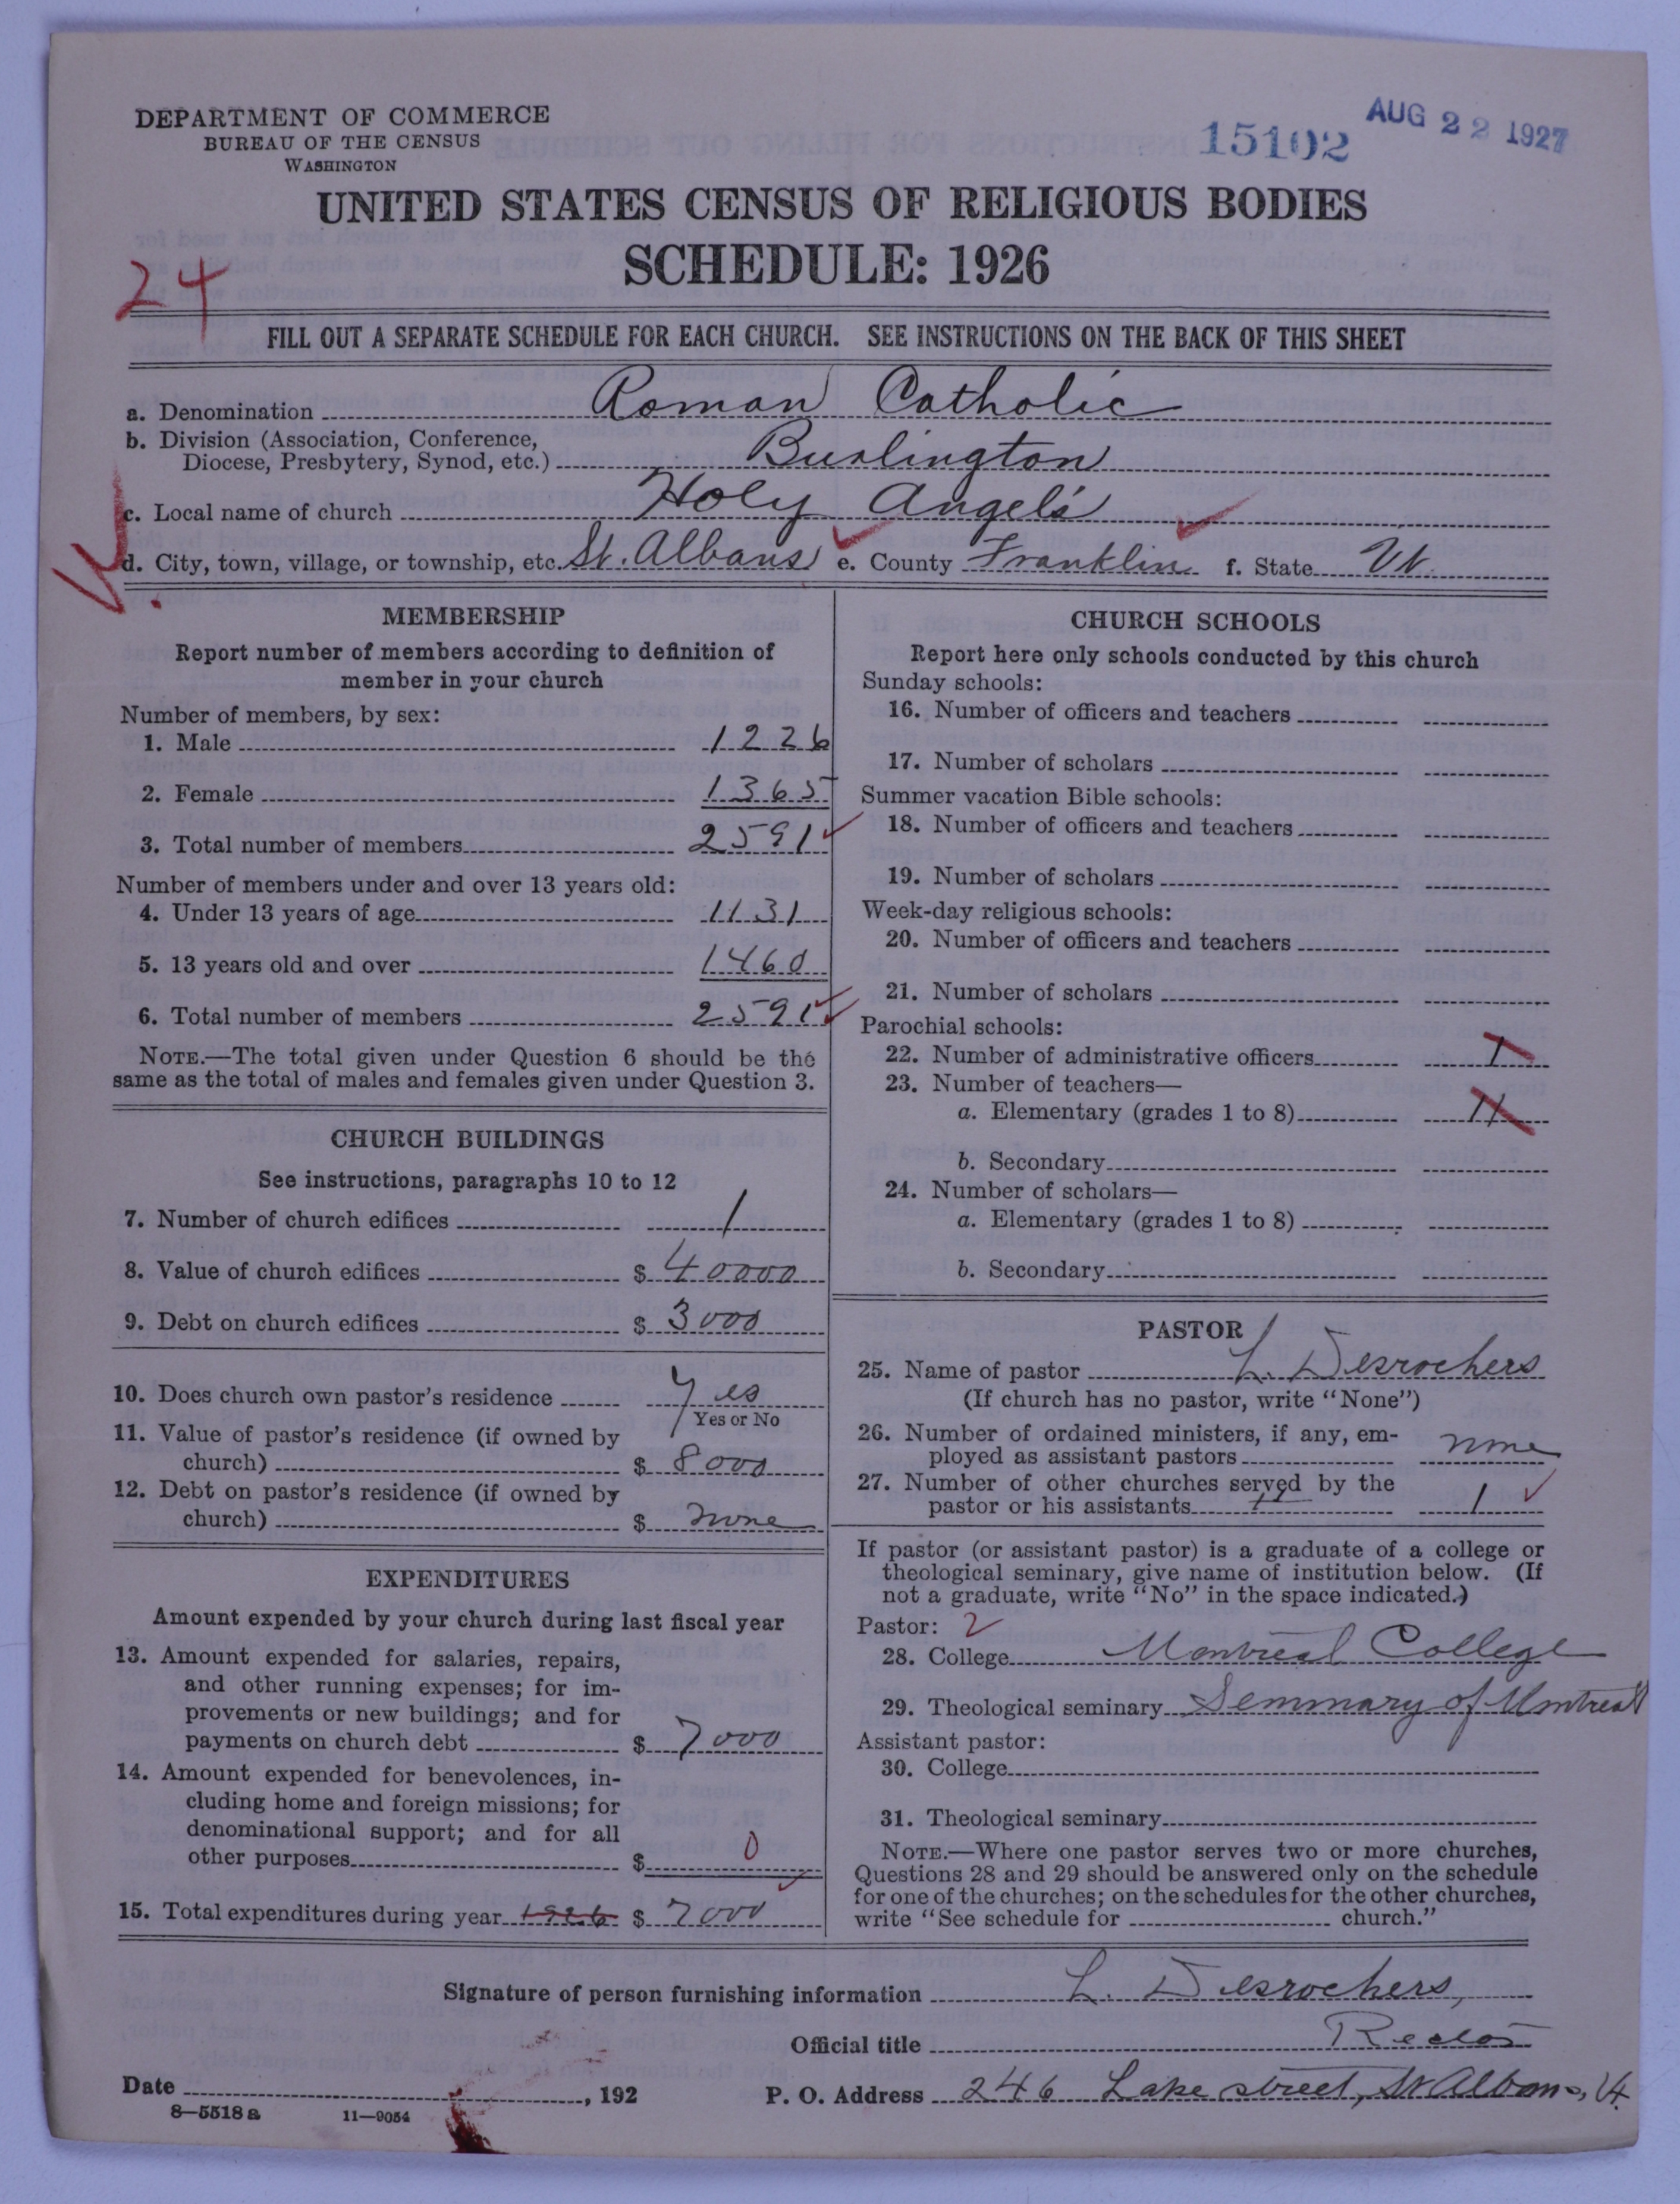 DEPARTMENT OF COMMERCE
BUREAU OF THE CENSUS
WASHINGTON
15102
AUG 22 1927
UNITED STATES CENSUS OF RELIGIOUS BODIES
SCHEDULE: 1926
24
FILL OUT A SEPARATE SCHEDULE FOR EACH CHURCH. SEE INSTRUCTIONS ON THE BACK OF THIS SHEET
a. Denomination Roman Catholic
b. Division (Association, Conference,
Diocese, Presbytery, Synod, etc.) Burlington
c. Local name of church Holy Angel's
d. City, town, village, or township, etc. St. Albans e. County Franklin f. State Vt.
MEMBERSHIP
Report number of members according to definition of
member in your church
Number of members, by sex:
1. Male 1226
2. Female 1365
3. Total number of members 2591
Number of members under and over 13 years old:
4. Under 13 years of age 1131
5. 13 years old and over 1460
6. Total number of members 2591
NOTE.—The total given under Question 6 should be the
same as the total of males and females given under Question 3.
CHURCH BUILDINGS
See instructions, paragraphs 10 to 12
7. Number of church edifices 1
8. Value of church edifices $ 40000
9. Debt on church edifices $ 3000
10. Does church own pastor's residence yes
Yes or No
11. Value of pastor's residence (if owned by
church) $ 8000
12. Debt on pastor's residence (if owned by
church) $ none
EXPENDITURES
Amount expended by your church during last fiscal year
13. Amount expended for salaries, repairs,
and other running expenses; for im-
provements or new buildings; and for
payments on church debt $ 7000
14. Amount expended for benevolences, in-
cluding home and foreign missions; for
denominational support; and for all
other purposes $ 0
15. Total expenditures during year 1926 $ 7000
CHURCH SCHOOLS
Report here only schools conducted by this church
Sunday schools:
16. Number of officers and teachers
17. Number of scholars
Summer vacation Bible schools:
18. Number of officers and teachers
19. Number of scholars
Week-day religious schools:
20. Number of officers and teachers
21. Number of scholars
Parochial schools:
22. Number of administrative officers 1
23. Number of teachers—
a. Elementary (grades 1 to 8) 11
b. Secondary
24. Number of scholars—
a. Elementary (grades 1 to 8)
b. Secondary
PASTOR
25. Name of pastor L. Desrochers
(If church has no pastor, write "None")
26. Number of ordained ministers, if any, em-
ployed as assistant pastors none
27. Number of other churches served by the
pastor or his assistants 1
If pastor (or assistant pastor) is a graduate of a college or
theological seminary, give name of institution below. (If
not a graduate, write "No" in the space indicated.)
Pastor: 2
28. College Montreal College
29. Theological seminary Seminary of Montreal
Assistant pastor:
30. College
31. Theological seminary
NOTE.—Where one pastor serves two or more churches,
Questions 28 and 29 should be answered only on the schedule
for one of the churches; on the schedules for the other churches,
write "See schedule for church."
Signature of person furnishing information L. Desrochers,
Official title Rector
Date , 192
P. O. Address 246 Lake street, St Albans, Vt.
8—5518 a 11—9054